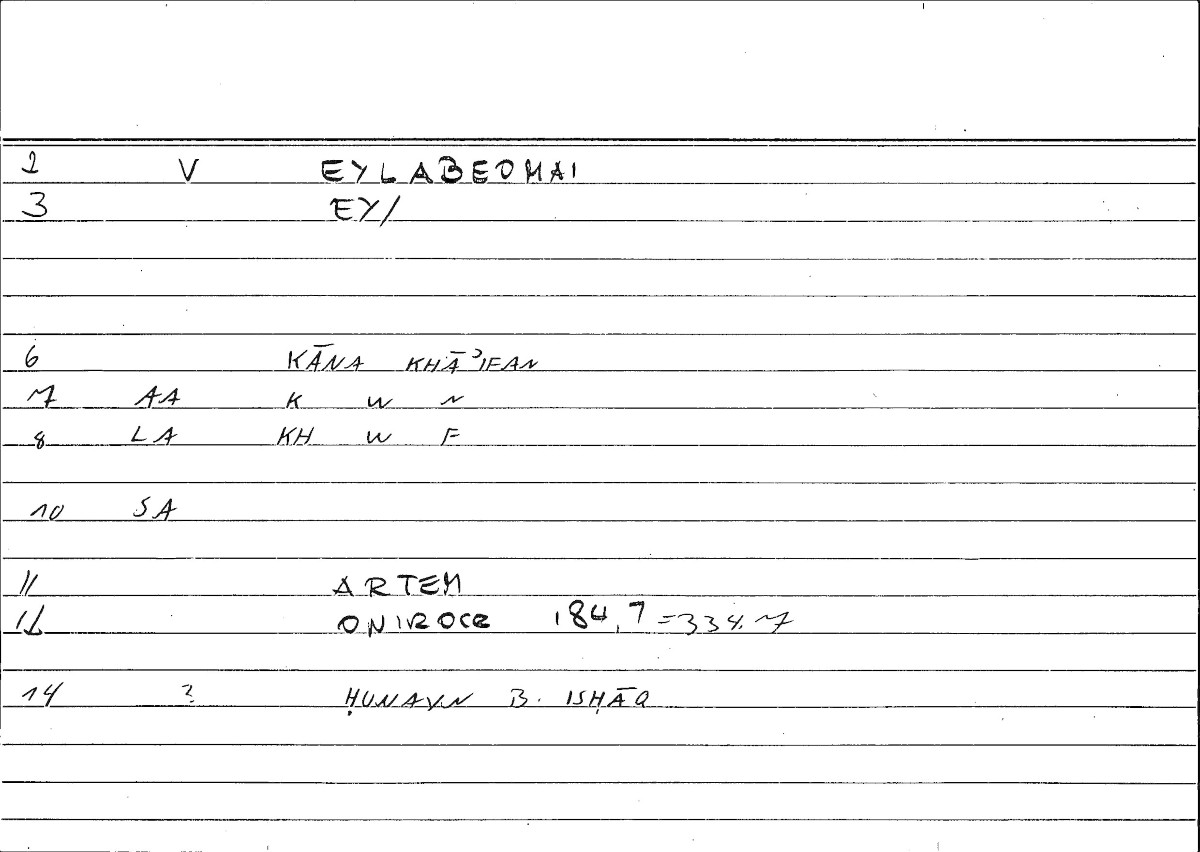 2 V EYLABEOMAI
3 EY/
6 KĀNA KHĀʾIFAN
7 AA K W N
8 LA KH W F
10 SA
11 ARTEM
12 ONIROCR 184,7 =334.7
14 ? ḤUNAYN B. ISḤĀQ